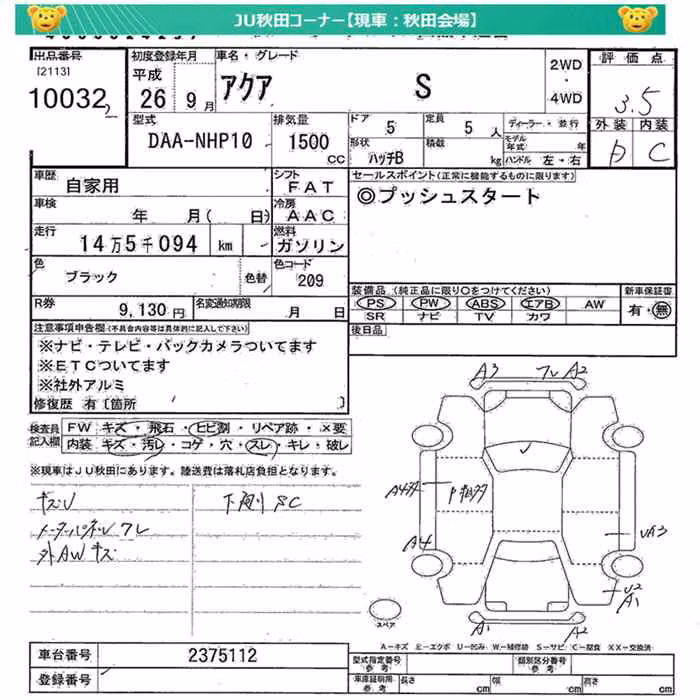 JU秋田コーナー【現車：秋田会場】
出品番号
[2113]
10032
初度登録年月
平成 26年 9月
車名・グレード
アクア S
2WD
・
4WD
評価点
3.5
外装 内装
D C
型式
DAA-NHP10
排気量
1500
CC
ドア 5
定員 5人
形状 ハッチB
積載 kg
ディーラー・並行
モデル年式 年
ハンドル 左・右
車歴 自家用
シフト FAT
車検 年 月( 日)
冷房 AAC
走行 14万5千094 km
燃料 ガソリン
色 ブラック 色替
色コード 209
R券 9,130円
名変通知期限 月 日
セールスポイント(正常に機能するものに限ります)
◎プッシュスタート
装備品 (純正品に限り○をつけてください)
PS PW ABS エアB AW
SR ナビ TV カワ
新車保証書
有・無
後日品
注意事項申告欄(不具合内容等は具体的に記入して下さい)
※ナビ・テレビ・バックカメラついてます
※ETCついてます
※社外アルミ
修復歴 有〔箇所 〕
検査員記入欄
FW キズ・飛石・ヒビ割・リペア跡・×要
内装 キズ・汚レ・コゲ・穴・スレ・キレ・破レ
※現車はJU秋田にあります。陸送費は落札店負担となります。
キズU
メーターパネルワレ
外AWキズ
下廻りSC
A3 A2
A4
UA3
U2
A1
A1 A2
スペア
A-キズ E-エクボ U-凹み W-補修跡 S-サビ C-腐食 XX-交換済
車台番号 2375112
登録番号
型式指定番号 参考
類別区分番号 参考
車庫証明用 参考
長さ cm 幅 cm 高さ cm